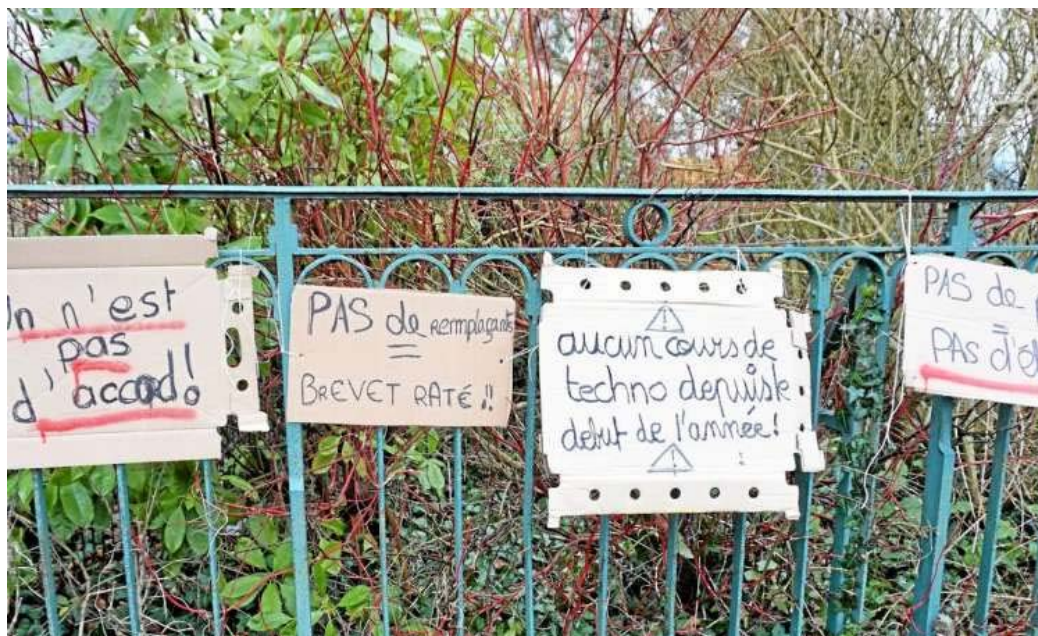 n n'est
pas
d'accord!
PAS de remplaçants
=
BREVET RATÉ !!
aucun cours de
techno depuis le
debut de l'année !
PAS de
=
PAS d'é